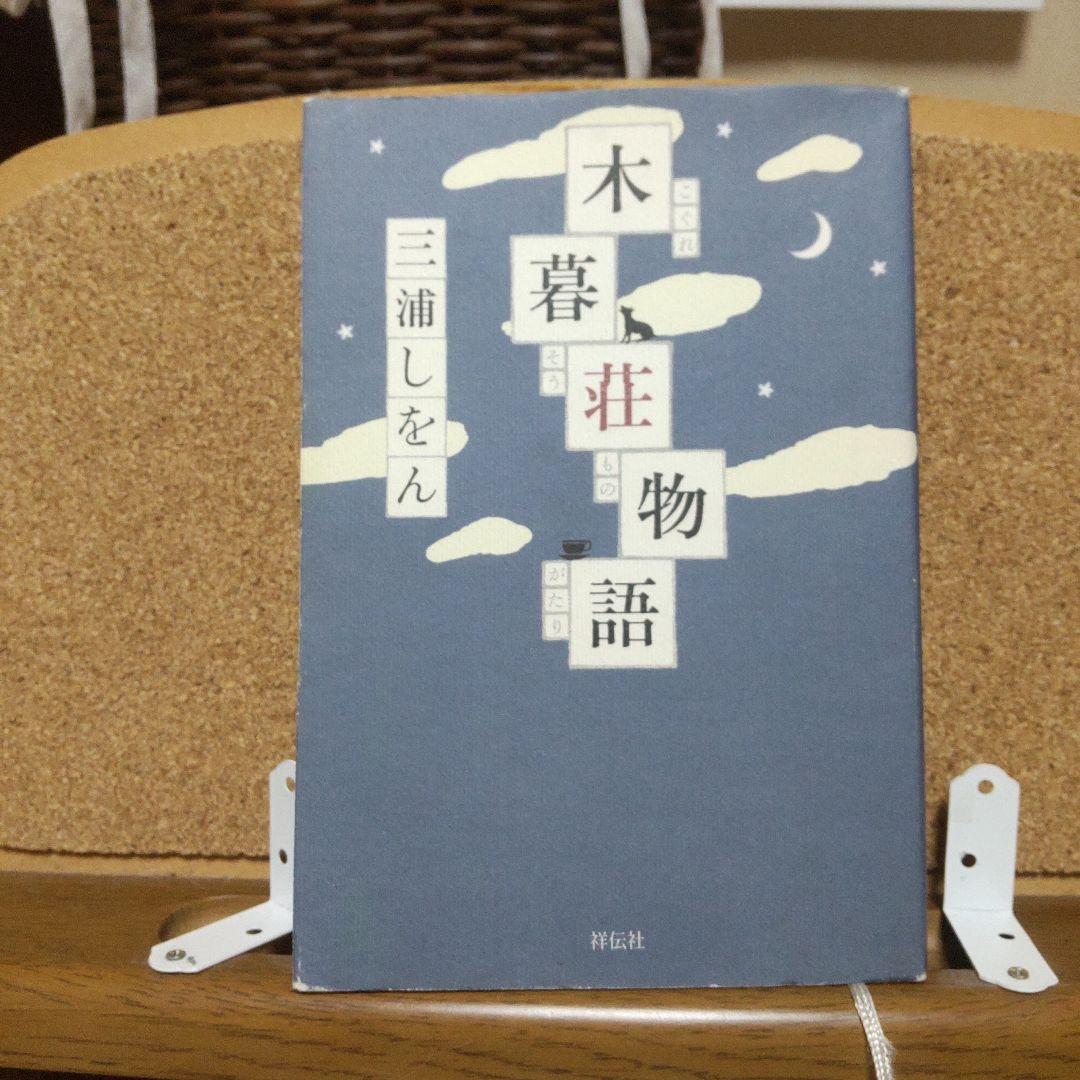 木暮荘物語
こぐれそうものがたり
三浦しをん
祥伝社